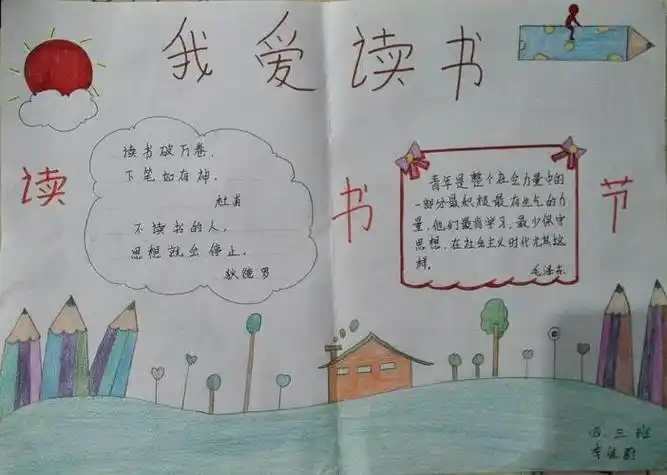 我爱读书
读书节
读书破万卷，
下笔如有神。
杜甫
不读书的人，
思想就会停止。
狄德罗
青年是整个社会力量中的
一部分最积极最有生气的力
量，他们最肯学习，最少保守
思想，在社会主义时代尤其这
样。
毛泽东
四.三班